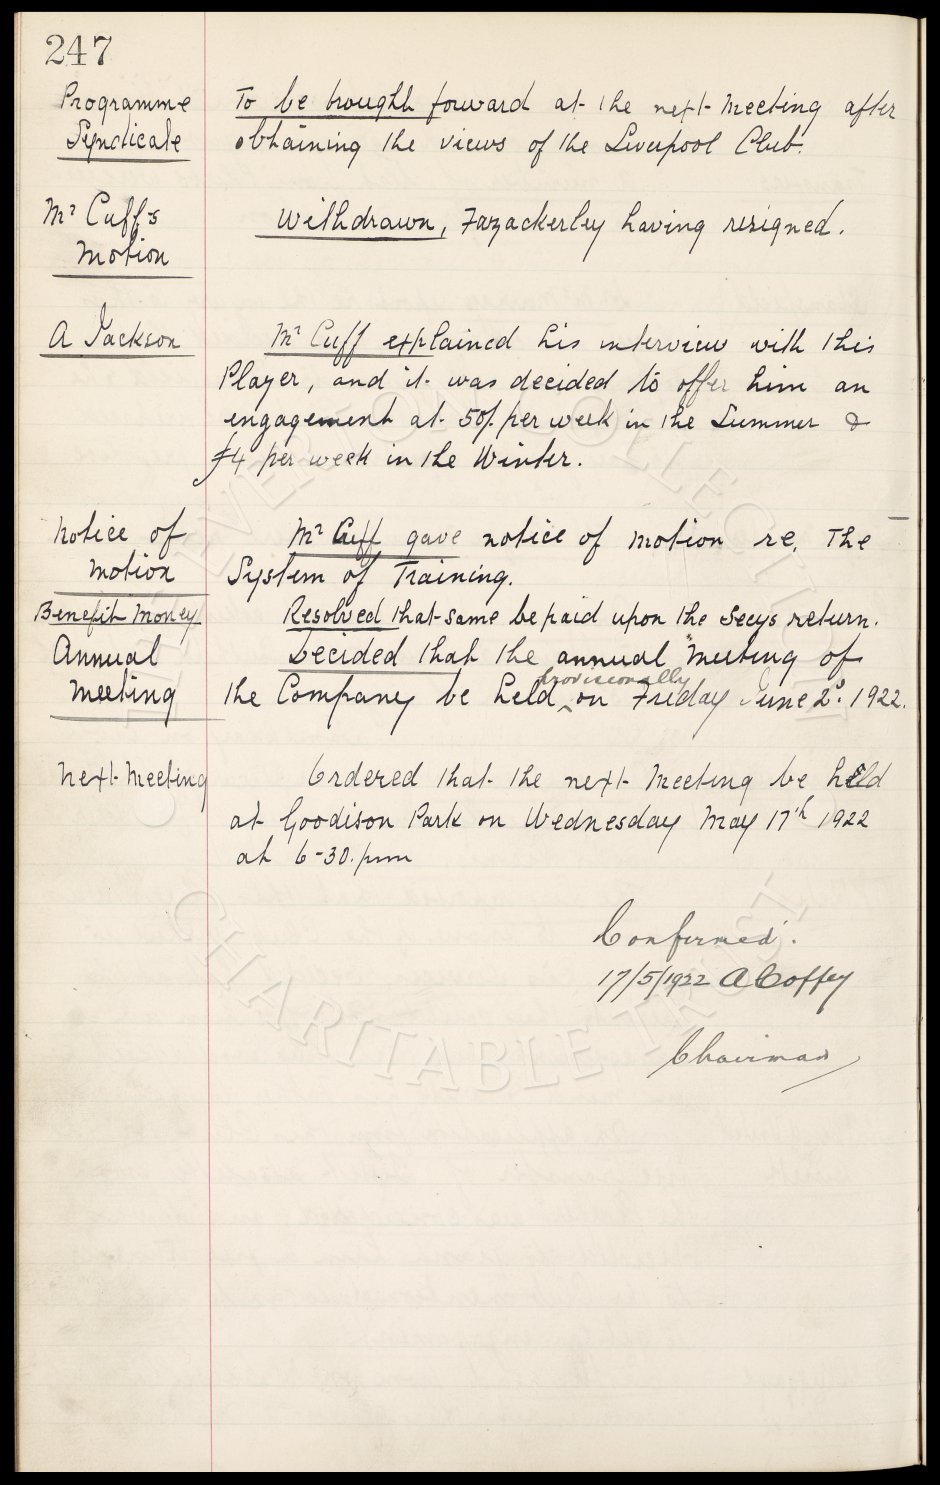 247
Programme To be brought forward at the next Meeting after
Syndicate obtaining the views of the Liverpool Club.
Mr Cuff's Withdrawn, Fazackerley having resigned.
Motion
A Jackson Mr Cuff explained his interview with this
Player, and it was decided to offer him an
engagement at 50/- per week in the Summer &
£4 per week in the Winter.
Notice of Mr Cuff gave notice of motion re. The
Motion System of Training.
Benefit Money Resolved that same be paid upon the Secys return.
Annual Decided that the annual Meeting of
Meeting the Company be held provisionally on Friday June 2d. 1922.
Next Meeting Ordered that the next Meeting be held
at Goodison Park on Wednesday May 17th 1922
at 6-30. pm
Confirmed.
17/5/1922 A Coffey
Chairman
EVERTON COLLECTION
CHARITABLE TRUST